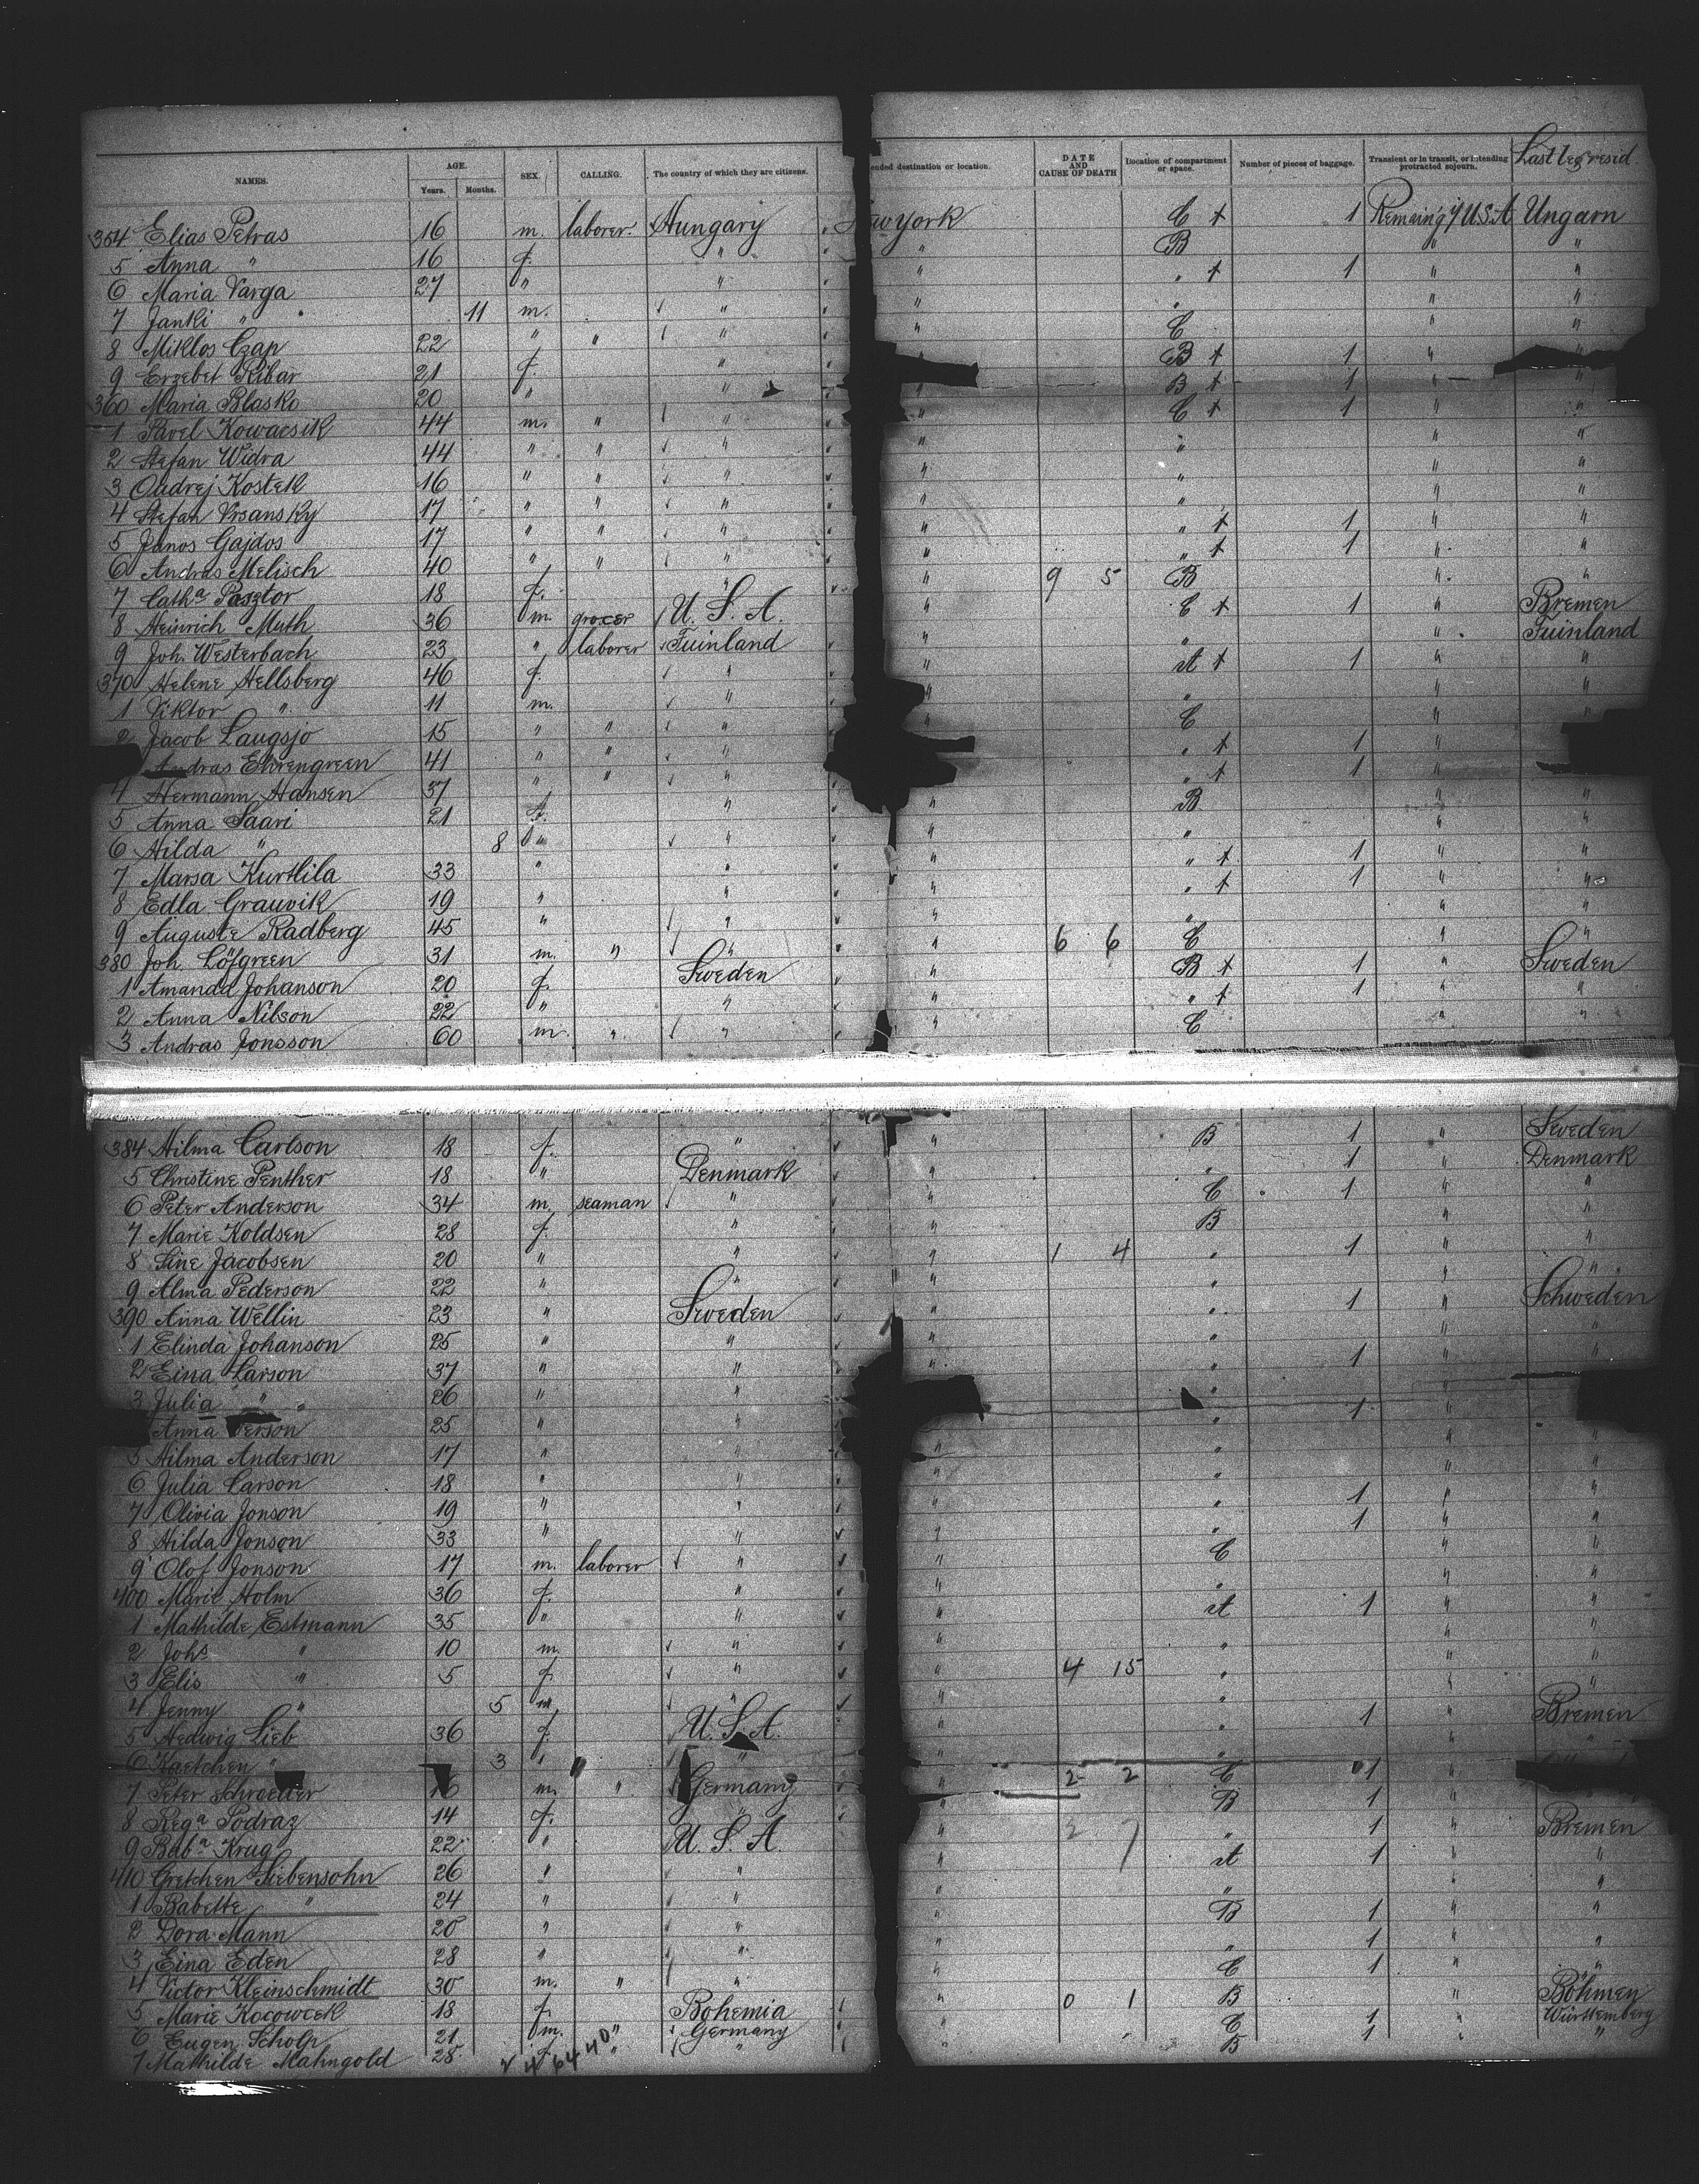 NAMES. AGE. Years. Months. SEX. CALLING. The country of which they are citizens. ended destination or location. DATE AND CAUSE OF DEATH Location of compartment or space. Number of pieces of baggage. Transient or in transit, or intending protracted sojourn. Last leg. resid.
354 Elias Petras 16 m. laborer Hungary New York C + 1 Remain'g U.S.A Ungarn
5 Anna " 16 f. " " B " "
6 Maria Varga 27 " " " " + 1 " "
7 Janki " 11 m. " " " " "
8 Miklos Czap 22 " " " " C " "
9 Erzebet Ribar 21 f. " B + 1 " "
360 Maria Blasko 20 " " " B + 1 "
1 Pavel Kowacsik 44 m. " " " C + 1 " "
2 Stefan Widra 44 " " " " " " "
3 Ondrej Kostek 16 " " " " " " "
4 Stefan Vrsansky 17 " " " " " " "
5 Janos Gajdos 17 " " " " " + 1 " "
6 Andras Melisch 40 " " " " " + 1 " "
7 Cath.a Pasztor 18 f. " " 9 5 B " "
8 Heinrich Muth 36 m. grocer U. S. A. " C + 1 " Bremen
9 Joh. Westerbach 23 " laborer Fuinland " " " Fuinland
370 Helene Hellsberg 46 f. " " st + 1 " "
1 Viktor " 11 m. " " " "
2 Jacob Laugsjo 15 " " " " C "
Andras Ehrengreen 41 " " " " + 1 "
4 Hermann Hansen 37 " " " " + 1 "
5 Anna Saari 21 f. " " B " "
6 Hilda " 8 " " " " " "
7 Marsa Kurttila 33 " " " " + 1 " "
8 Edla Grauvik 19 " " " " + 1 " "
9 Auguste Radberg 45 " " " " " "
380 Joh. Löfgreen 31 m. " " " 6 6 C " "
1 Amanda Johanson 20 f. Sweden " B + 1 " Sweden
2 Anna Nilson 22 " " " " + 1 " "
3 Andras Jonsson 60 m. " " " C " "
384 Hilma Carlson 18 f. " " B 1 " Sweden
5 Christine Penther 18 " Denmark " " 1 " Denmark
6 Peter Anderson 34 m. seaman " " C 1 " "
7 Marie Koldsen 28 f. " " B " "
8 Sine Jacobsen 20 " " " 1 4 " 1 " "
9 Alma Pederson 22 " " " " " "
390 Anna Wellin 23 " Sweden " " 1 " Schweden
1 Elinda Johanson 25 " " " " " "
2 Eina Larson 37 " " " " 1 " "
3 Julia " 26 " " " "
Anna 25 " " " 1 "
5 Hilma Anderson 17 " " " " " "
6 Julia Carson 18 " " " " " "
7 Olivia Jonson 19 " " " " 1 " "
8 Hilda Jonson 33 " " " " 1 " "
9 Olof Jonson 17 m. laborer " " C " "
400 Marie Holm 36 f. " " " " "
1 Mathilde Estmann 35 " " " st 1 " "
2 Joh.s " 10 m. " " " " "
3 Elis " 5 f. " " 4 15 " " "
4 Jenny " 5 m " " " " "
5 Hedwig Lieb 36 f. U. S. A. " " 1 " Bremen
6 Kaetchen " 3 " " " " "
7 Peter Schroeder m. " Germany 2 2 C 1 "
8 Reg.a Podraz 14 f. " " B 1 "
9 Bab.a Krug 22 " U. S. A. " 2 7 " 1 " Bremen
410 Gretchen Siebensohn 26 " " " st 1 " "
1 Babette " 24 " " " " " "
2 Dora Mann 20 " " " B 1 " "
3 Eina Eden 28 " " " " 1 " "
4 Victor Kleinschmidt 30 m. " " " C 1 " "
5 Marie Kocowcek 18 f. Bohemia " 0 1 B " Böhmen
6 Eugen Scholp 21 m. " Germany " C 1 " Württemberg
7 Mathilde Mahngold 28 f. " " " B 1 " "